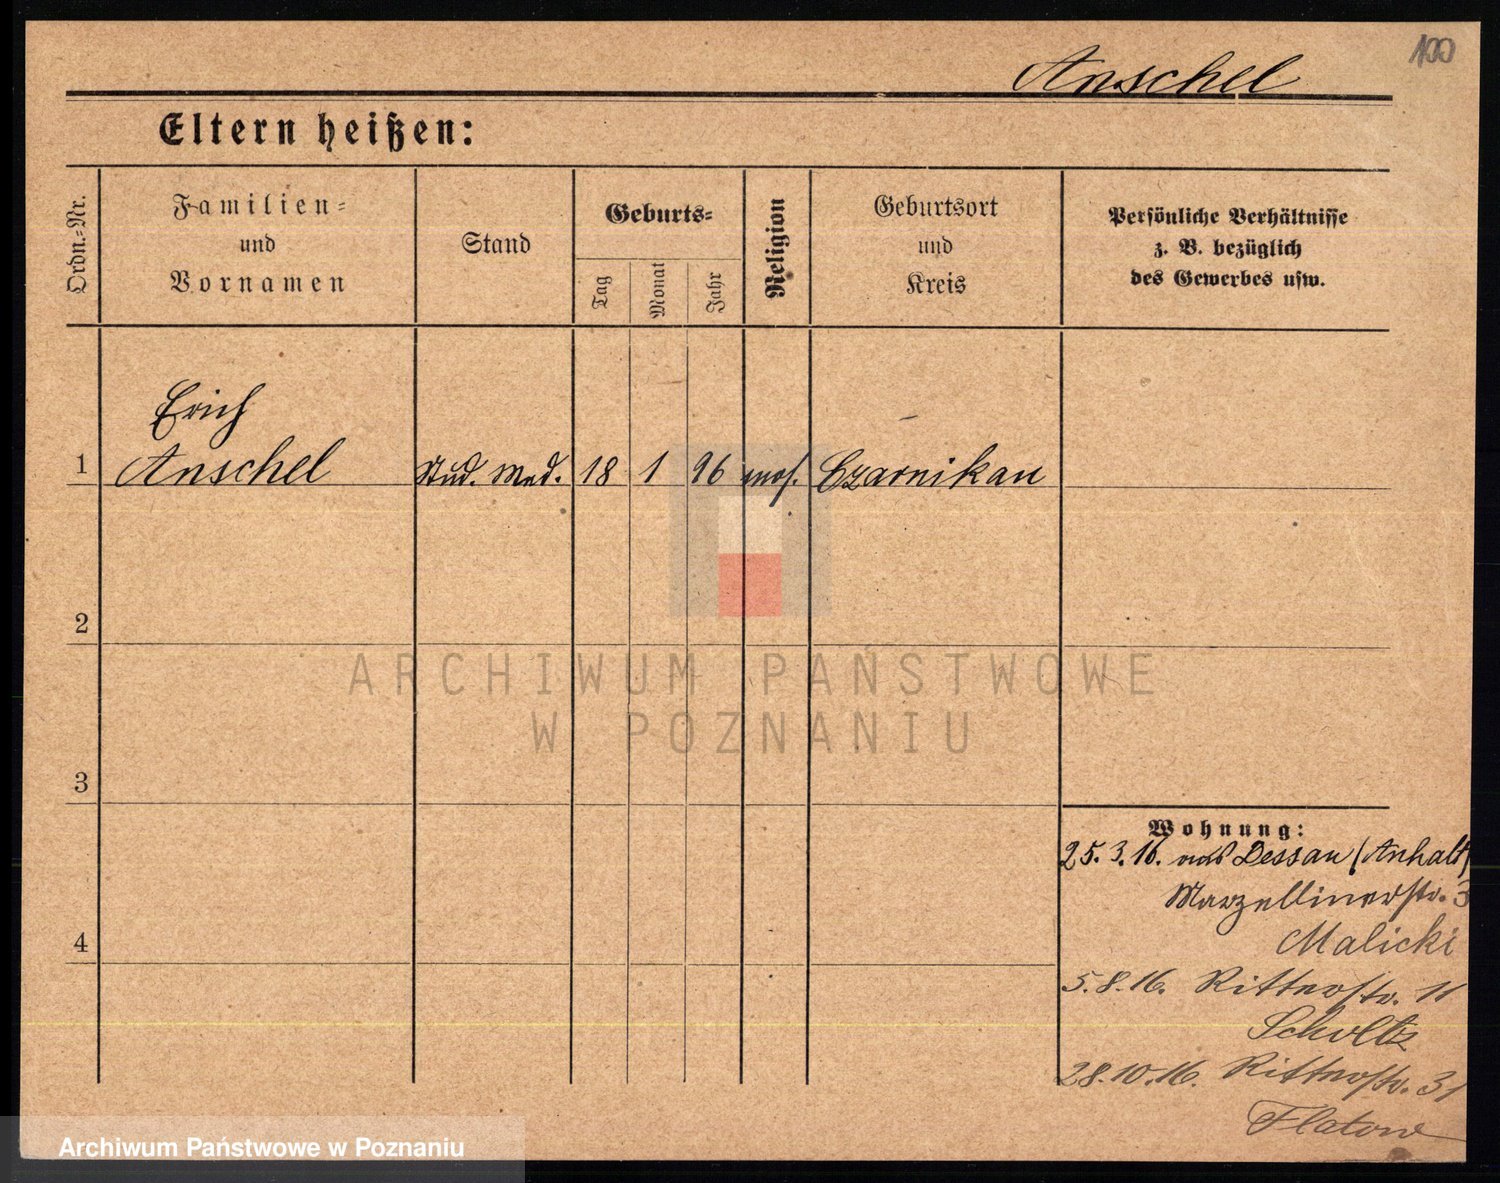 100
Anschel
Eltern heißen:
Ordn.=Nr.
Familien=
und
Vornamen
Stand
Geburts=
Tag
Monat
Jahr
Religion
Geburtsort
und
Kreis
Persönliche Verhältnisse
z. B. bezüglich
des Gewerbes usw.
Erich
1 Anschel Stud. Med. 18 1 96 mos. Czarnikau
2
3
4
Wohnung:
25.3.16. aus Dessau (Anhalt)
Marzellinerstr. 3
Malicki
5.8.16. Ritterstr. 11
Scholtz
28.10.16. Ritterstr. 31
Flatow
ARCHIWUM PAŃSTWOWE
W POZNANIU
Archiwum Państwowe w Poznaniu